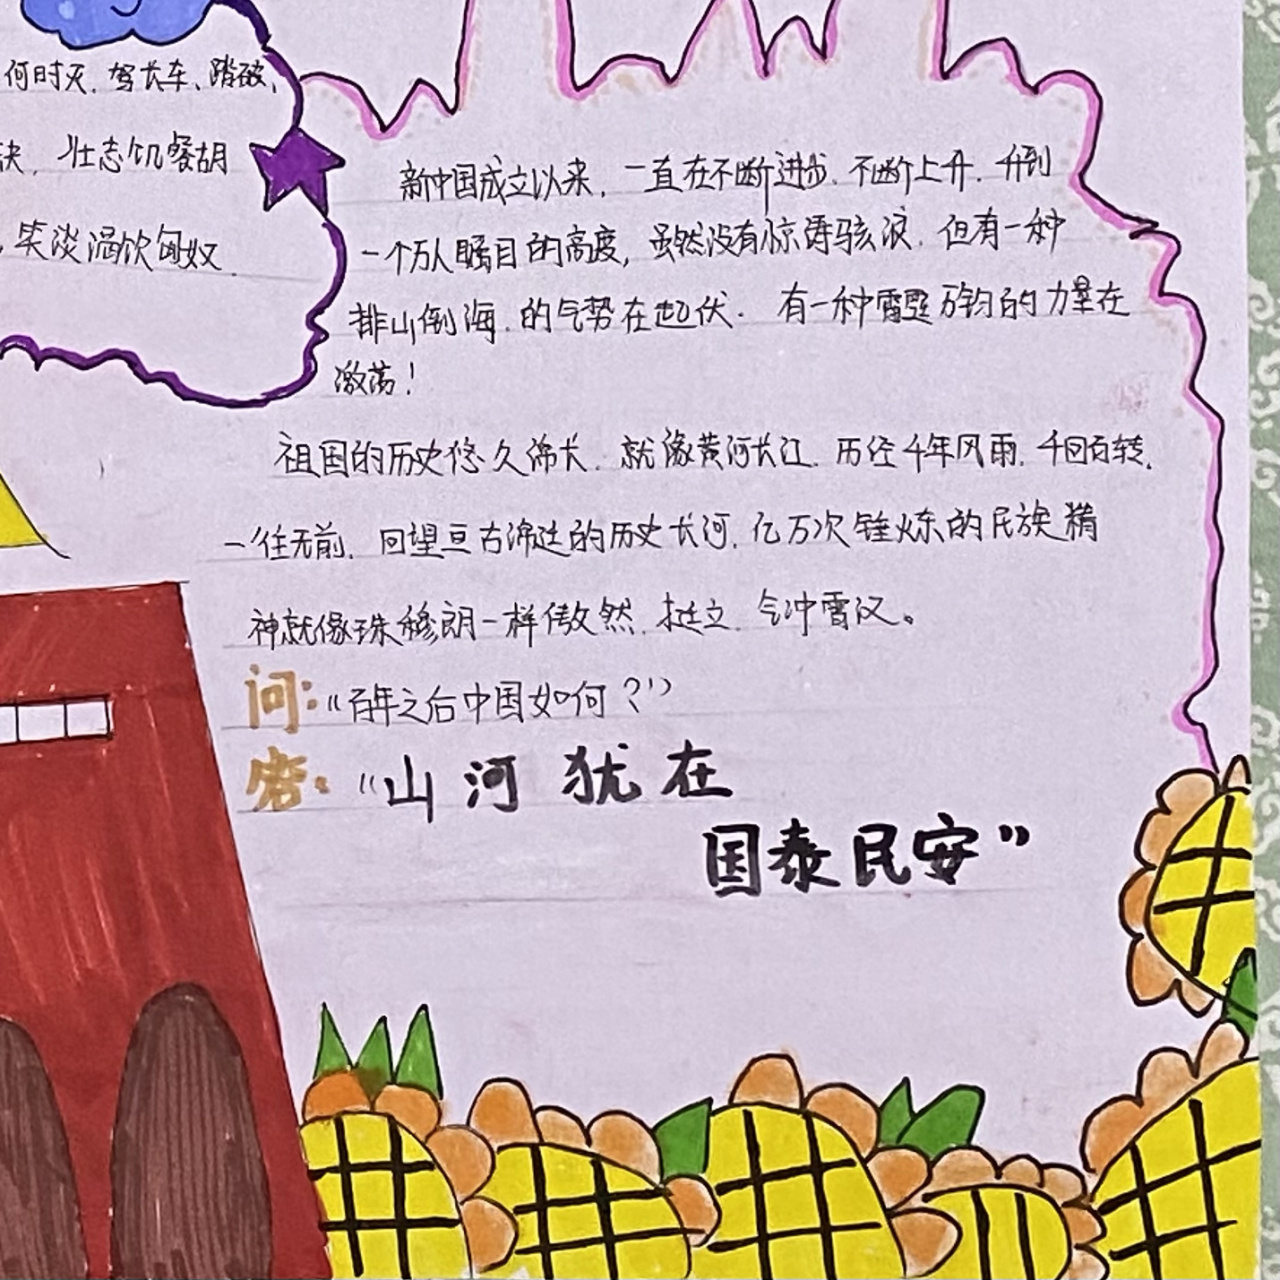 何时灭.驾长车、踏破,
缺.壮志饥餐胡
,笑谈渴饮匈奴.
新中国成立以来,一直在不断进步.不断上升.升到
一个万人瞩目的高度,虽然没有惊涛骇浪.但有一种
排山倒海.的气势在起伏.有一种雷霆万钧的力量在
激荡!
祖国的历史悠久绵长.就像黄河长江.历经千年风雨.千回百转.
一往无前.回望亘古绵延的历史长河.亿万次锤炼的民族精
神就像珠穆朗一样傲然.挺立.气冲霄汉。
问:“百年之后中国如何?”
答:“山河犹在
国泰民安”